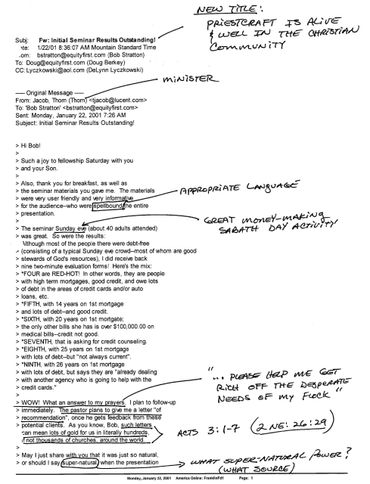 NEW TITLE:
PRIESTCRAFT IS ALIVE
& WELL IN THE CHRISTIAN
COMMUNITY
Subj: Fw: Initial Seminar Results Outstanding!
1/22/01 8:36:07 AM Mountain Standard Time
bstratton@equityfirst.com (Bob Stratton)
To: Doug@equityfirst.com (Doug Berkey)
CC: Lyczkowski@aol.com (DeLynn Lyczkowski)
MINISTER
----- Original Message -----
From: Jacob, Thom (Thom) <tjacob@lucent.com>
To: 'Bob Stratton' <bstratton@equityfirst.com>
Sent: Monday, January 22, 2001 7:26 AM
Subject: Initial Seminar Results Outstanding!
> Hi Bob!
>
> Such a joy to fellowship Saturday with you
> and your Son.
>
> Also, thank you for breakfast, as well as
> the seminar materials you gave me. The materials
> were very user friendly and very informative
> for the audience--who were spellbound the entire
> presentation.
APPROPRIATE LANGUAGE
>
> The seminar Sunday eve (about 40 adults attended)
> was great. So were the results:
GREAT MONEY-MAKING
SABATH DAY ACTIVITY
> Although most of the people there were debt-free
> (consisting of a typical Sunday eve crowd--most of whom are good
> stewards of God's resources), I did receive back
> nine two-minute evaluation forms! Here's the mix:
> *FOUR are RED-HOT! In other words, they are people
> with high term mortgages, good credit, and owe lots
> of debt in the areas of credit cards and/or auto
> loans, etc.
> *FIFTH, with 14 years on 1st mortgage
> and lots of debt--and good credit.
> *SIXTH, with 20 years on 1st mortgage;
> the only other bills she has is over $100,000.00 on
> medical bills--credit not good.
> *SEVENTH, that is asking for credit counseling.
> *EIGHTH, with 25 years on 1st mortgage
> with lots of debt--but "not always current".
> *NINTH, with 26 years on 1st mortgage
> with lots of debt, but says they are "already dealing
> with another agency who is going to help with the
> credit cards."
>
> WOW! What an answer to my prayers. I plan to follow-up
> immediately. The pastor plans to give me a "letter of
> recommendation", once he gets feedback from these
> potential clients. As you know, Bob, such letters
> can mean lots of gold for us in literally hundreds,
> if not thousands of churches, around the world.
"... PLEASE HELP ME GET
RICH OFF THE DESPERATE
NEEDS OF MY FLOCK"
ACTS 3:1-7 (2 NE: 26:29)
>
> May I just share with you that it was just so natural,
> or should I say super-natural) when the presentation
WHAT SUPER-NATURAL POWER?
(WHAT SOURCE)
Monday, January 22, 2001 America Online: FranklisPdf Page: 1